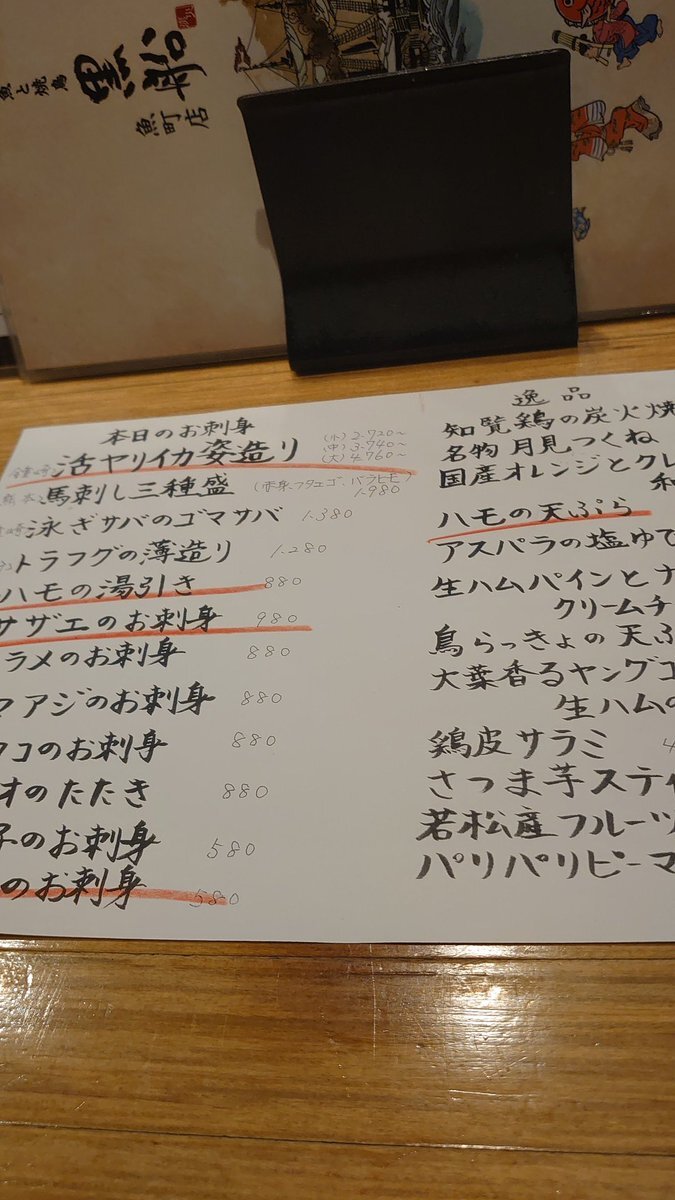 魚と焼鳥
黒船
魚町店
本日のお刺身
鐘崎 活ヤリイカ姿造り (小)2.720〜
(中)3.740〜
(大)4.760〜
熊本 馬刺し三種盛 (赤身・フタエゴ、バラヒモ) 1.980
泳ぎサバのゴマサバ 1.380
トラフグの薄造り 1.280
ハモの湯引き 880
サザエのお刺身 980
ラメのお刺身 880
マアジのお刺身 880
コのお刺身 880
オのたたき 880
子のお刺身 580
のお刺身 580
逸品
知覧鶏の炭火焼
名物月見つくね
国産オレンジとクレ
和
ハモの天ぷら
アスパラの塩ゆで
生ハムパインとナ
クリームチ
鳥らっきょの天ぷ
大葉香るヤングコ
生ハムの
鶏皮サラミ 4
さつま芋スティ
若松産フルーツ
パリパリピーマ